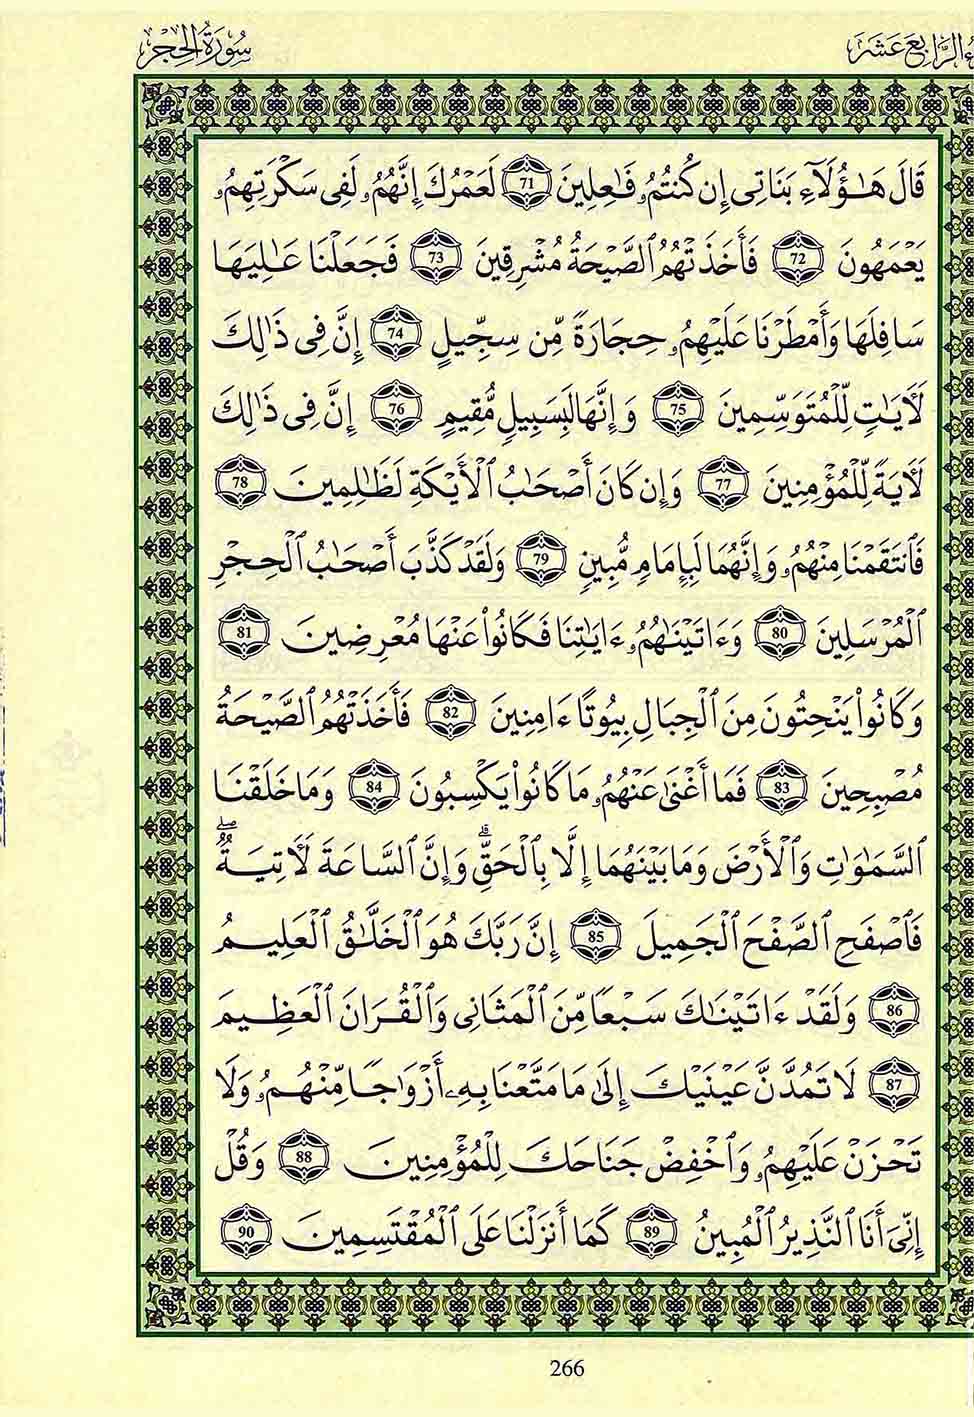 ءُ الرَّابِعَ عَشَرَ
سُورَةُ الحِجْر
قَالَ هَٰٓؤُلَآءِ بَنَاتِى إِن كُنتُمُۥ فَٰعِلِينَ 71 لَعَمْرُكَ إِنَّهُمُۥ لَفِى سَكْرَتِهِمُۥ
يَعْمَهُونَ 72 فَأَخَذَتْهُمُ ٱلصَّيْحَةُ مُشْرِقِينَ 73 فَجَعَلْنَا عَٰلِيَهَا
سَافِلَهَا وَأَمْطَرْنَا عَلَيْهِمُۥ حِجَارَةً مِّن سِجِّيلٍ 74 إِنَّ فِى ذَٰلِكَ
لَأٓيَٰتٍ لِّلْمُتَوَسِّمِينَ 75 وَإِنَّهَا لَبِسَبِيلٍ مُّقِيمٍ 76 إِنَّ فِى ذَٰلِكَ
لَأٓيَةً لِّلْمُؤْمِنِينَ 77 وَإِن كَانَ أَصْحَٰبُ ٱلْأَيْكَةِ لَظَٰلِمِينَ 78
فَٱنتَقَمْنَا مِنْهُمُۥ وَإِنَّهُمَا لَبِإِمَامٍ مُّبِينٍ 79 وَلَقَدْ كَذَّبَ أَصْحَٰبُ ٱلْحِجْرِ
ٱلْمُرْسَلِينَ 80 وَءَاتَيْنَٰهُمُۥ ءَايَٰتِنَا فَكَانُوا۟ عَنْهَا مُعْرِضِينَ 81
وَكَانُوا۟ يَنْحِتُونَ مِنَ ٱلْجِبَالِ بِيُوتًا ءَامِنِينَ 82 فَأَخَذَتْهُمُ ٱلصَّيْحَةُ
مُصْبِحِينَ 83 فَمَا أَغْنَىٰ عَنْهُمُۥ مَا كَانُوا۟ يَكْسِبُونَ 84 وَمَا خَلَقْنَا
ٱلسَّمَٰوَٰتِ وَٱلْأَرْضَ وَمَا بَيْنَهُمَا إِلَّا بِٱلْحَقِّ ۗ وَإِنَّ ٱلسَّاعَةَ لَأٓتِيَةٌ ۖ
فَٱصْفَحِ ٱلصَّفْحَ ٱلْجَمِيلَ 85 إِنَّ رَبَّكَ هُوَ ٱلْخَلَّٰقُ ٱلْعَلِيمُ
86 وَلَقَدْ ءَاتَيْنَٰكَ سَبْعًا مِّنَ ٱلْمَثَانِى وَٱلْقُرَانَ ٱلْعَظِيمَ
87 لَا تَمُدَّنَّ عَيْنَيْكَ إِلَىٰ مَا مَتَّعْنَا بِهِۦ أَزْوَٰجًا مِّنْهُمُۥ وَلَا
تَحْزَنْ عَلَيْهِمُۥ وَٱخْفِضْ جَنَاحَكَ لِلْمُؤْمِنِينَ 88 وَقُلْ
إِنِّىَ أَنَا ٱلنَّذِيرُ ٱلْمُبِينُ 89 كَمَا أَنزَلْنَا عَلَى ٱلْمُقْتَسِمِينَ 90
266